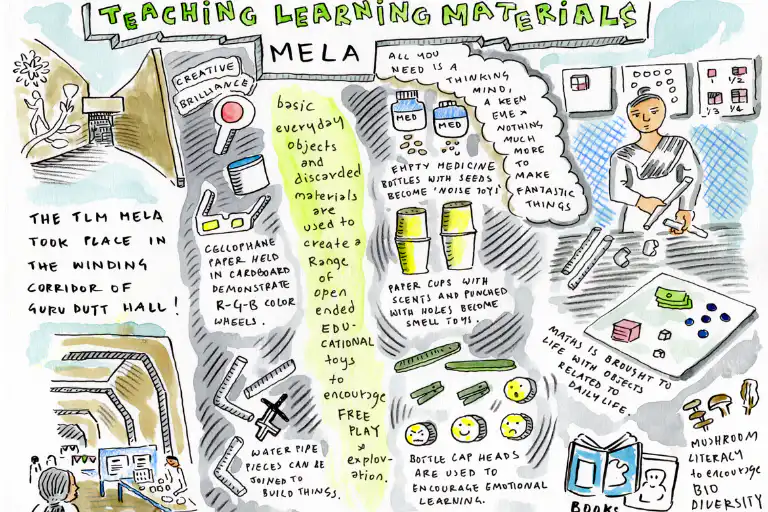 TEACHING LEARNING MATERIALS
MELA
THE TLM MELA
TOOK PLACE IN
THE WINDING
CORRIDOR OF
GURU DUTT HALL!
CREATIVE
BRILLIANCE
CELLOPHANE
PAPER HELD
IN CARDBOARD
DEMONSTRATE
R-G-B COLOR
WHEELS.
WATER PIPE
PIECES CAN BE
JOINED TO
BUILD THINGS.
basic
everyday
objects
and
discarded
materials
are
used to
create a
Range
of
open
ended
EDU-
CATIONAL
toys
to
encourage
FREE
PLAY
&
explor-
ation.
ALL YOU
NEED IS A
THINKING
MIND,
A KEEN
EYE &
NOTHING
MUCH
MORE
TO
MAKE
FANTASTIC
THINGS
MED
MED
EMPTY MEDICINE
BOTTLES WITH SEEDS
BECOME 'NOISE TOYS'
PAPER CUPS WITH
SCENTS AND PUNCHED
WITH HOLES BECOME
SMELL TOYS.
BOTTLE CAP HEADS
ARE USED TO
ENCOURAGE EMOTIONAL
LEARNING.
1 1/2
1/3 1/4
MATHS IS BROUGHT TO
LIFE WITH OBJECTS
RELATED TO
DAILY LIFE.
BOOKS
MUSHROOM
LITERACY
to encourage
BIO
DIVERSITY